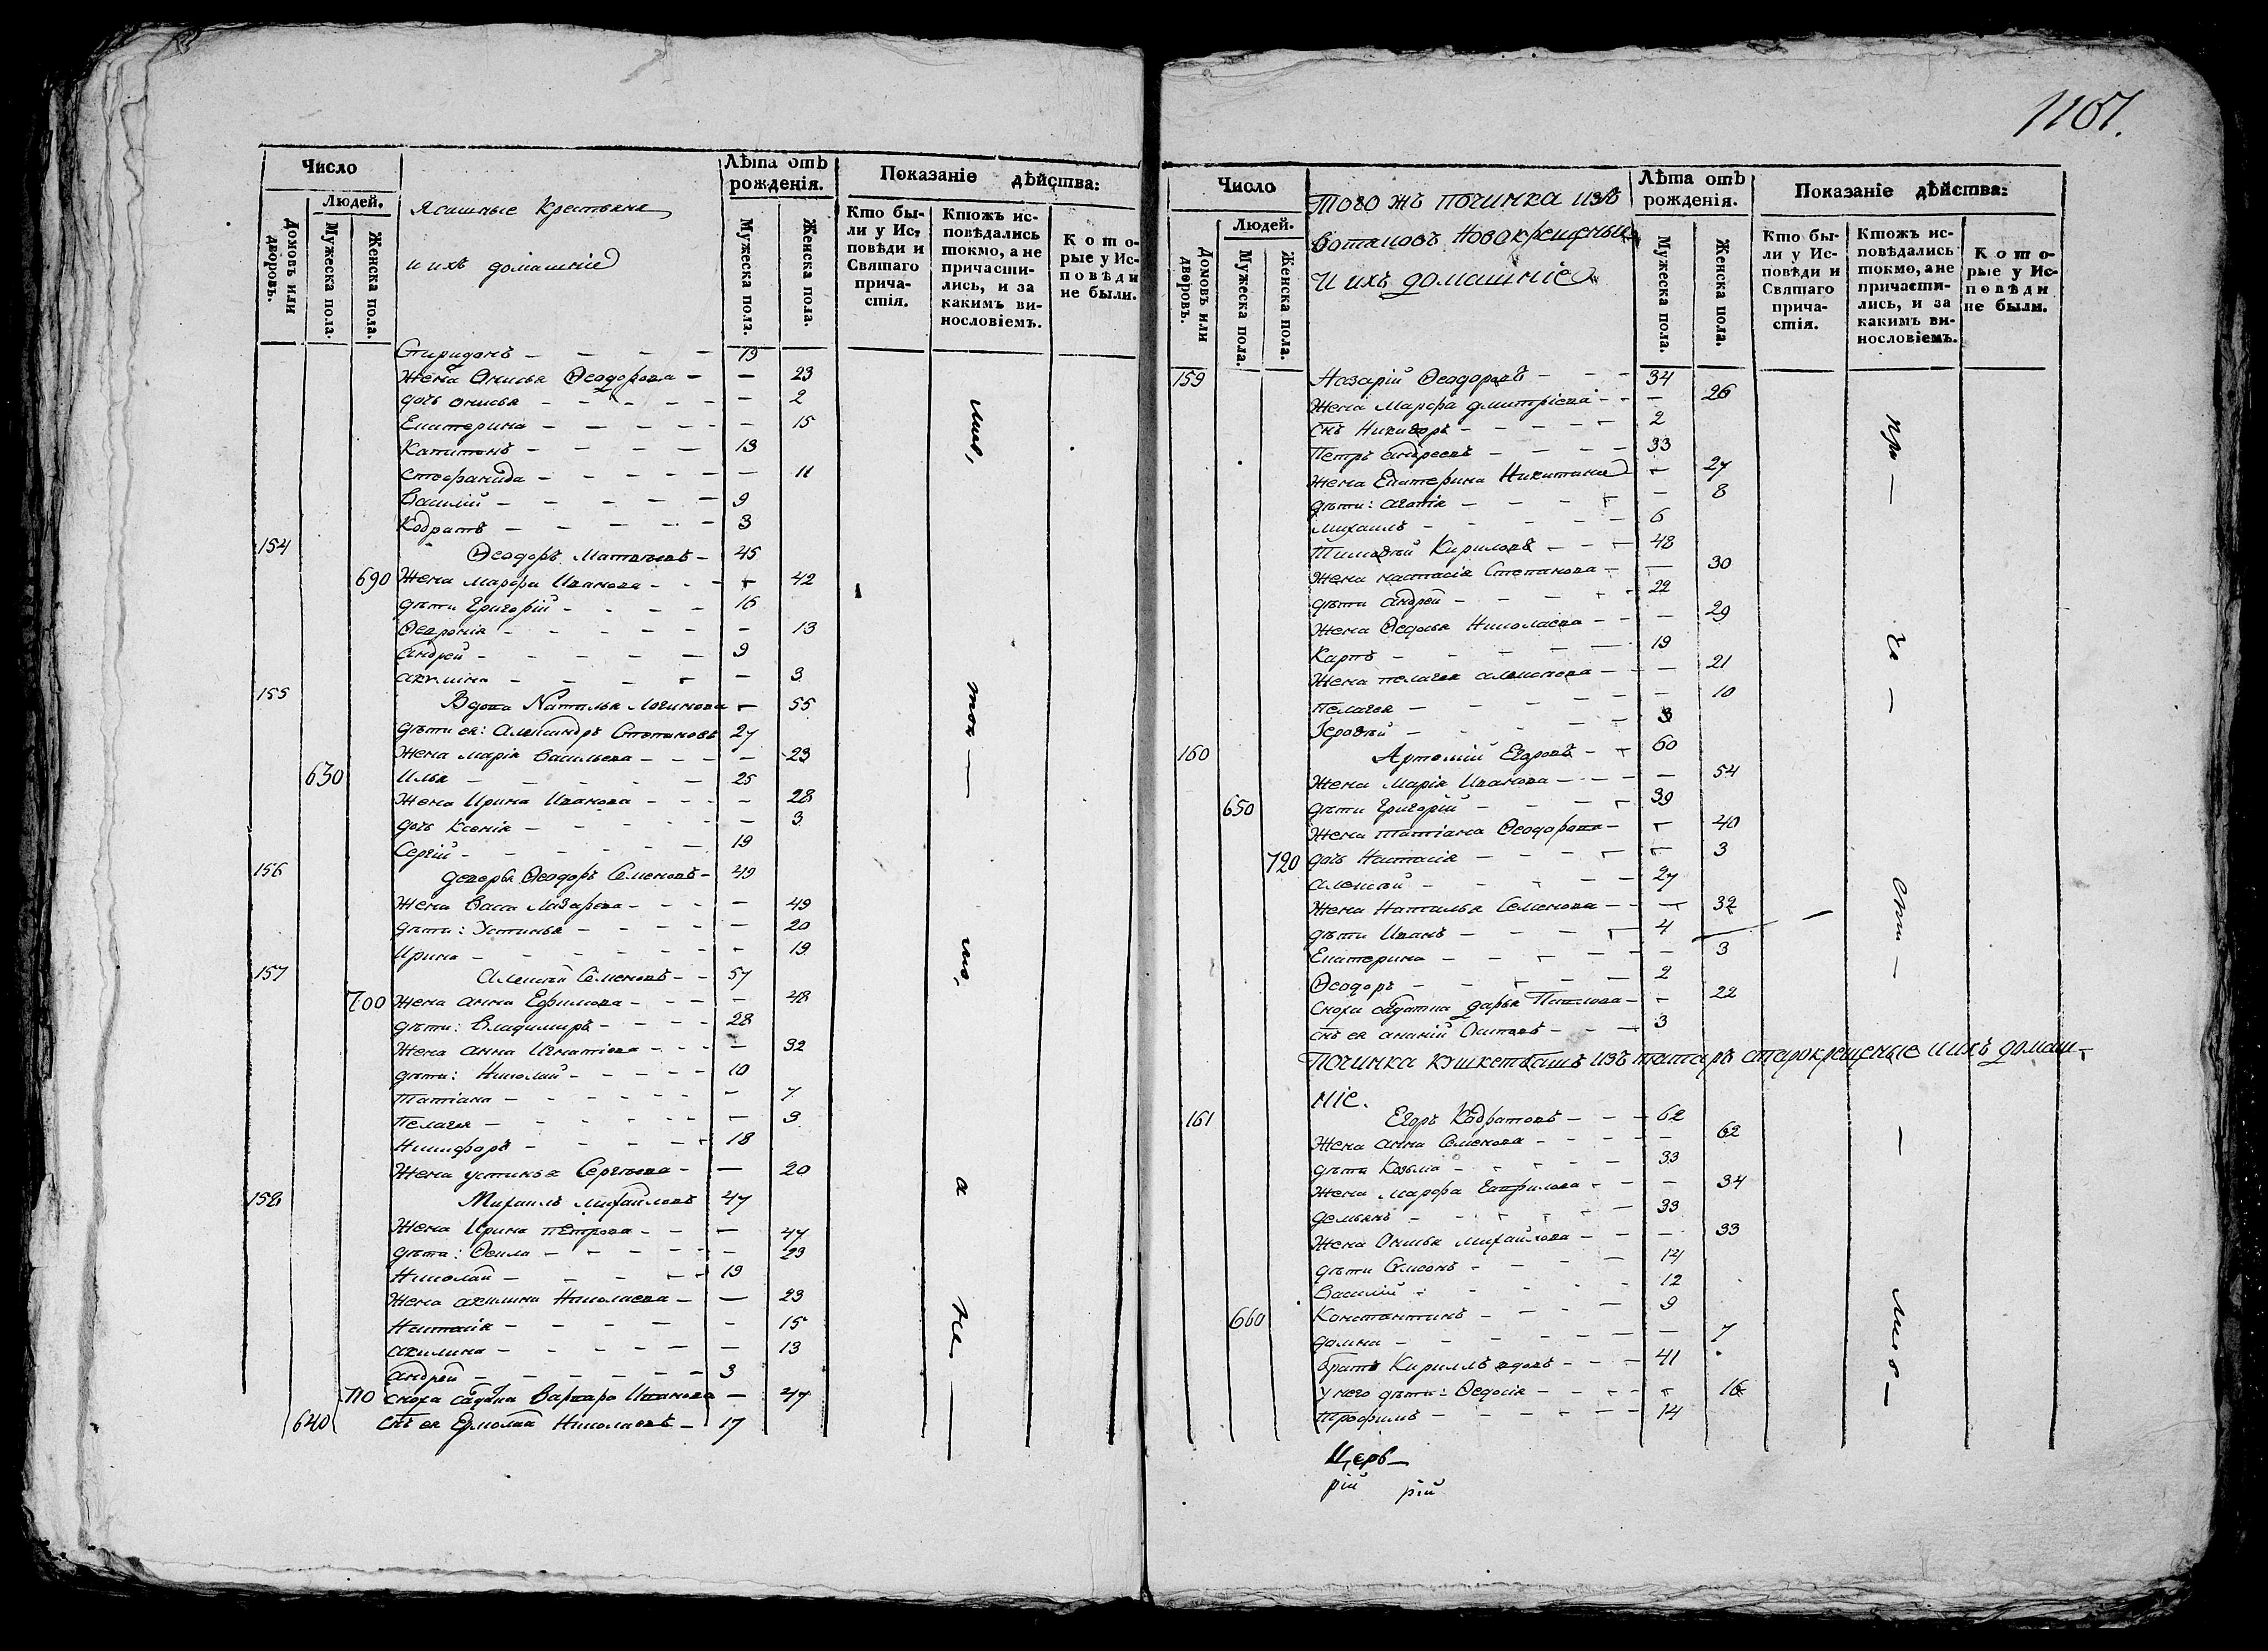 1107.
Число
Людей.
Домовъ или дворовъ.
Мужеска пола.
Женска пола.
Ясашные Крестьяне
и ихъ домашніе
Лѣта отъ рожденія.
Мужеска пола.
Женска пола.
Показаніе дѣйства:
Кто были у Исповѣди и Святаго причастія.
Ктожъ исповѣдались токмо, а не причастились, и за какимъ винословіемъ.
Которые у Исповѣди не были.
Спиридонъ 19
Жена Ѳеодорова 23
дочь 2
Екатерина 15
Капитонъ 13
Стефанида 11
Василій 9
Кодратъ 3
154 Ѳеодоръ 45
690 Жена Марѳа Иванова 42
дѣти Григорій 16
13
Андрей 9
Акилина 3
155 Вдова Наталья Логинова 55
дѣти ея: Александръ Степановъ 27
Жена Марія Васильева 23
630 Илья 25
Жена Ирина Иванова 28
дочь Ксенія 3
Сергій 19
156 Ѳеодоръ Семеновъ 49
Жена Васа Лазарева 49
дѣти: Устинья 20
Ирина 19
157 Алексѣй Семеновъ 57
700 Жена Анна Ефимова 48
дѣти: Владимиръ 28
Жена Анна Игнатіева 32
дѣти: Николай 10
Татіана 7
Пелагея 3
Никифоръ 18
Жена Устинья Сергѣева 20
158 Михаилъ Михайловъ 47
Жена Ирина Петрова 47
дѣти: 23
Николай 19
Жена Акилина Николаева 23
Настасія 15
Акилина 13
Андрей 3
710 сноха Варвара Иванова 47
640 снъ ея Ермолай Николаевъ 17
Число
Людей.
Домовъ или дворовъ.
Мужеска пола.
Женска пола.
Того жъ починка изъ
вотяковъ Новокрещеныя
И ихъ домашніе
Лѣта отъ рожденія.
Мужеска пола.
Женска пола.
Показаніе дѣйства:
Кто были у Исповѣди и Святаго причастія.
Ктожъ исповѣдались токмо, а не причастились, и за какимъ винословіемъ.
Которые у Исповѣди не были.
159 Назарій Ѳеодоровъ 34
Жена Марѳа Дмитріева 26
снъ Никифоръ 2
Петръ Андреевъ 33
Жена Екатерина Никитина 27
дѣти: Агафія 8
Михаилъ 6
Тимоѳей Кириловъ 48
Жена Настасія Степанова 30
дѣти Андрей 22
Жена Ѳедосья Николаева 29
Карпъ 19
Жена Пелагея 21
Пелагея 10
Іероѳей 3
160 Артемій Егоровъ 60
Жена Марія Иванова 54
650 дѣти Григорій 39
Жена Татіана Ѳеодорова 40
720 дочь Настасія 3
Алексѣй 27
Жена Наталья Семенова 32
дѣти Иванъ 4
Екатерина 3
Ѳеодоръ 2
Сноха Дарья Павлова 22
снъ ея Ананій 3
Починка изъ татаръ старокрещеные и ихъ домаш-
ніе.
161 Егоръ Кодратовъ 62
Жена Анна Семенова 62
дѣти Козьма 33
Жена Марѳа Гаврилова 34
Демьянъ 33
Жена Михайлова 33
дѣти 14
Василій 12
660 Константинъ 9
Домна 7
братъ Кириллъ вдовъ 41
у него дѣти: Ѳедосія 16
Трофимъ 14
Церв-
рій рій